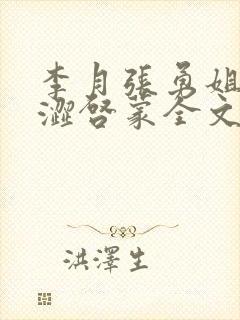 李月張勇姐
澀啓蒙全文
洪澤生